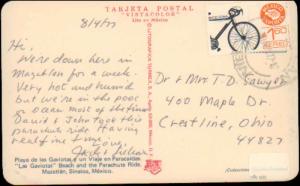 TARJETA POSTAL
"VISTACOLOR"
Lito en México
8/4/77
Hi,
We're down here in
Mazatlan for a week.
Very hot and humid
but we're in the pool
or ocean most of the time.
David & John took this
parachute ride. Having
real fine time.
Love,
Playa de las Gaviotas, y un Viaje en Paracaidas
"Las Gaviotas" Beach and the Parachute Ride.
Mazatlán, Sinaloa, México.
1.60
AEREO
Dr & Mrs. T. D. Sawyer
400 Maple Dr.
Crestline, Ohio
44827